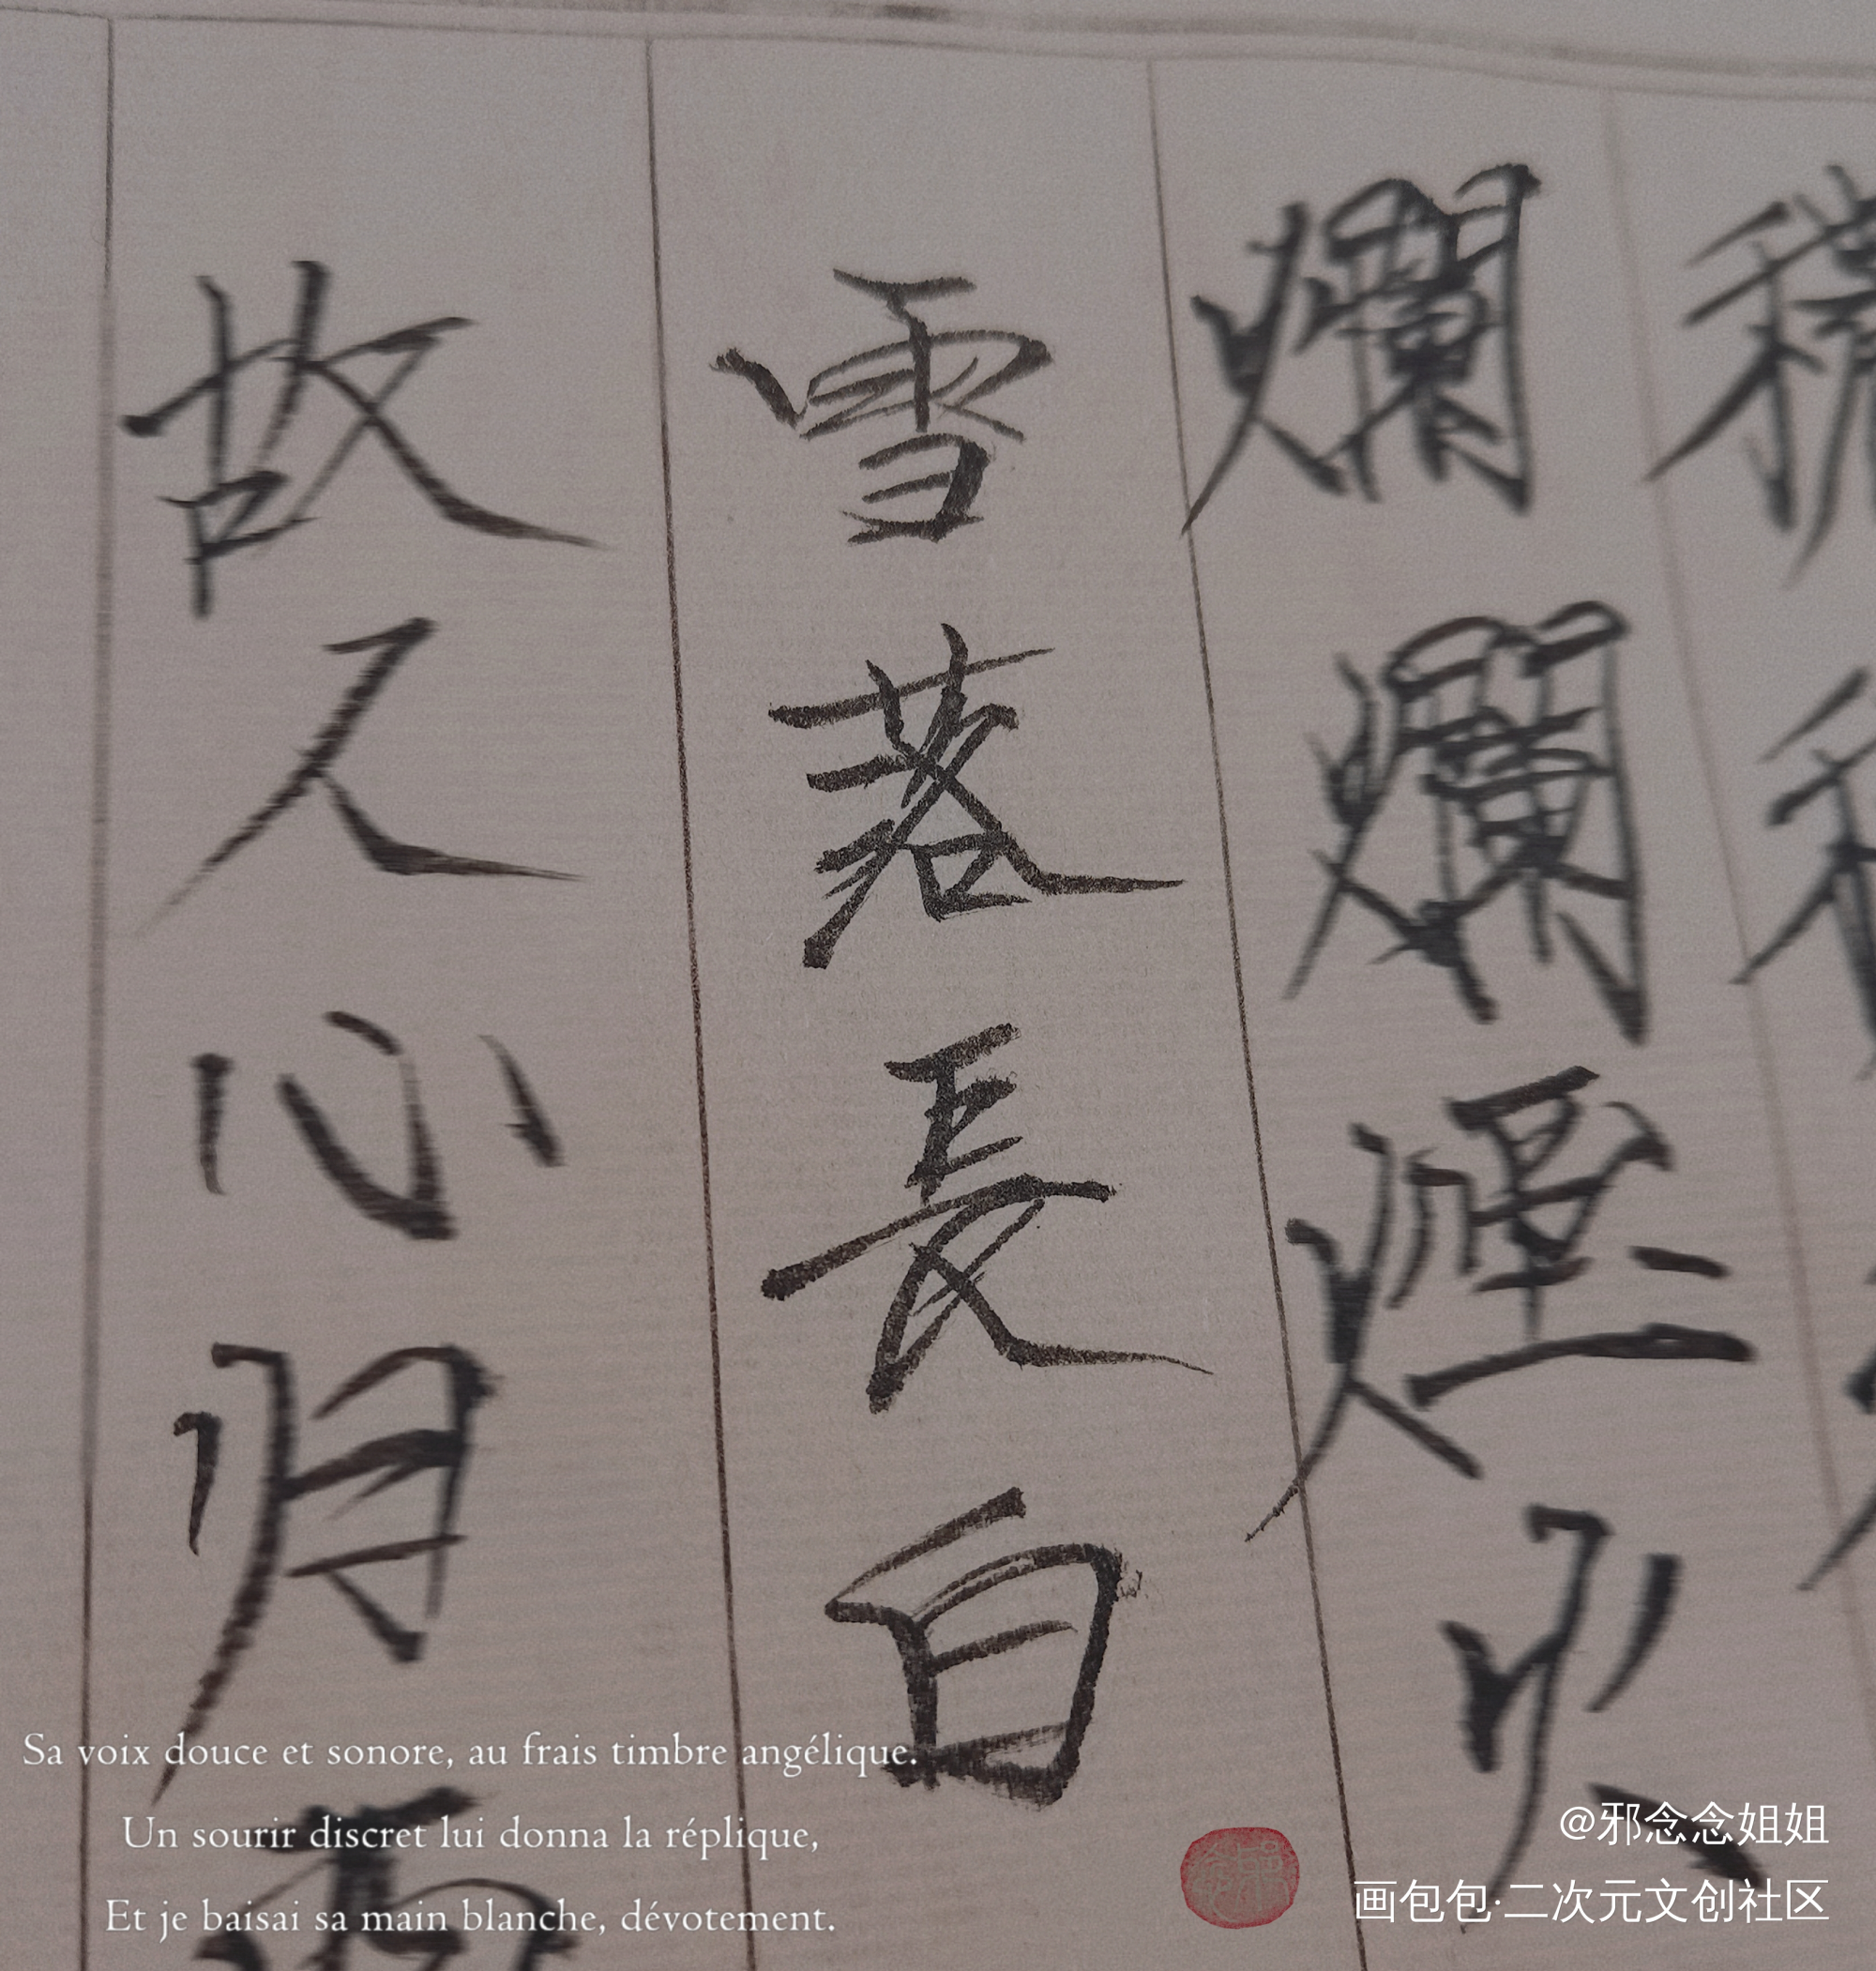 爛爛煙火
雪落長白
故人心归
Sa voix douce et sonore, au frais timbre angélique.
Un sourir discret lui donna la réplique,
Et je baisai sa main blanche, dévotement.
@邪念念姐姐
画包包·二次元文创社区